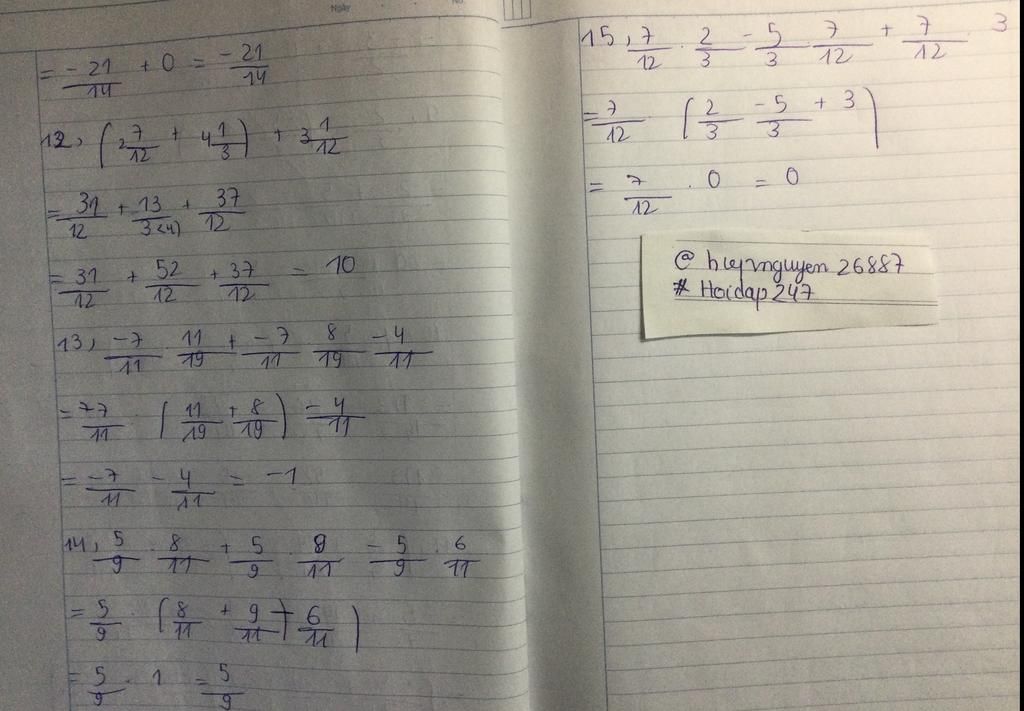 Ngày No.
= -21/14 + 0 = -21/14
12, (2 7/12 + 4 1/3) + 3 1/12
= 31/12 + 13/3(4) + 37/12
= 31/12 + 52/12 + 37/12 = 10
13, -7/11 . 11/19 + -7/11 . 8/19 - 4/11
= -7/11 . (11/19 + 8/19) - 4/11
= -7/11 - 4/11 = -1
14, 5/9 . 8/11 + 5/9 . 9/11 - 5/9 . 6/11
= 5/9 . (8/11 + 9/11 - 6/11)
= 5/9 . 1 = 5/9
15, 7/12 . 2/3 - 5/3 . 7/12 + 7/12 . 3
= 7/12 (2/3 - 5/3 + 3)
= 7/12 . 0 = 0
@ hiepnguyen 26887
# Hoidap247